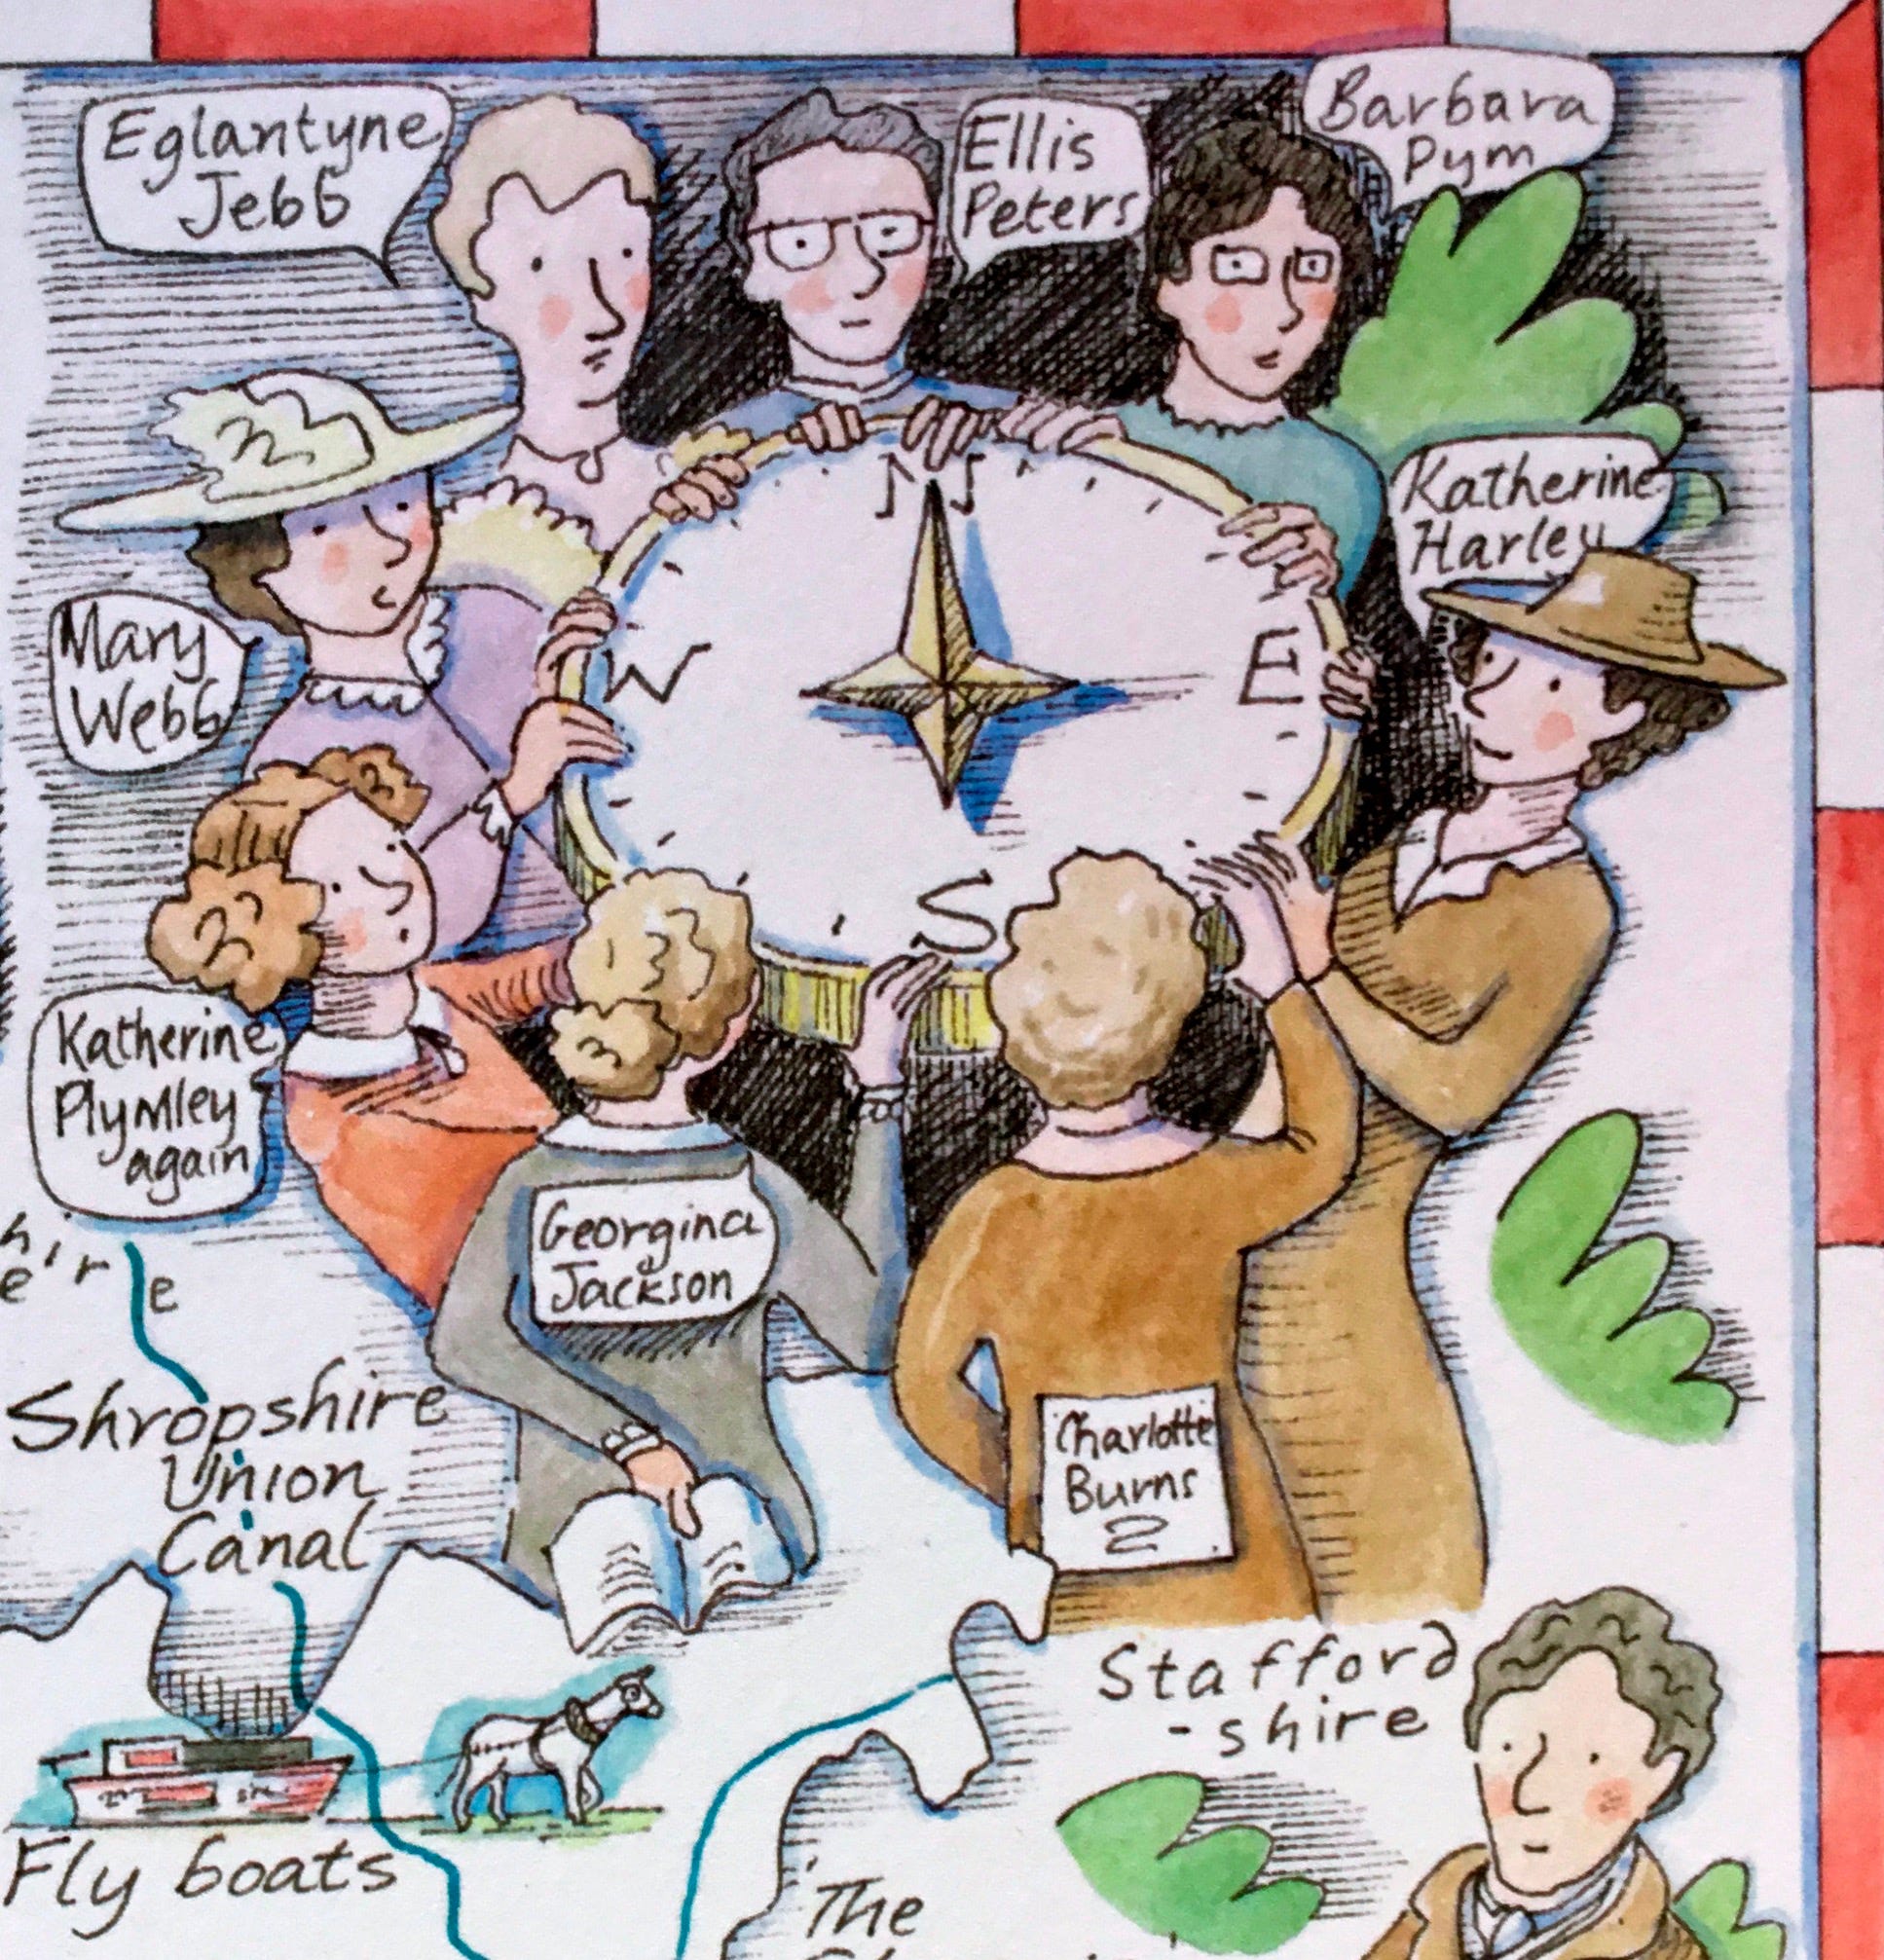 Eglantyne
Jebb
Ellis
Peters
Barbara
Pym
Katherine
Harley
Mary
Webb
N
W
E
S
Katherine
Plymley
again
Georgina
Jackson
Charlotte
Burns
Shropshire
Union
Canal
Stafford
-shire
Fly boats
The